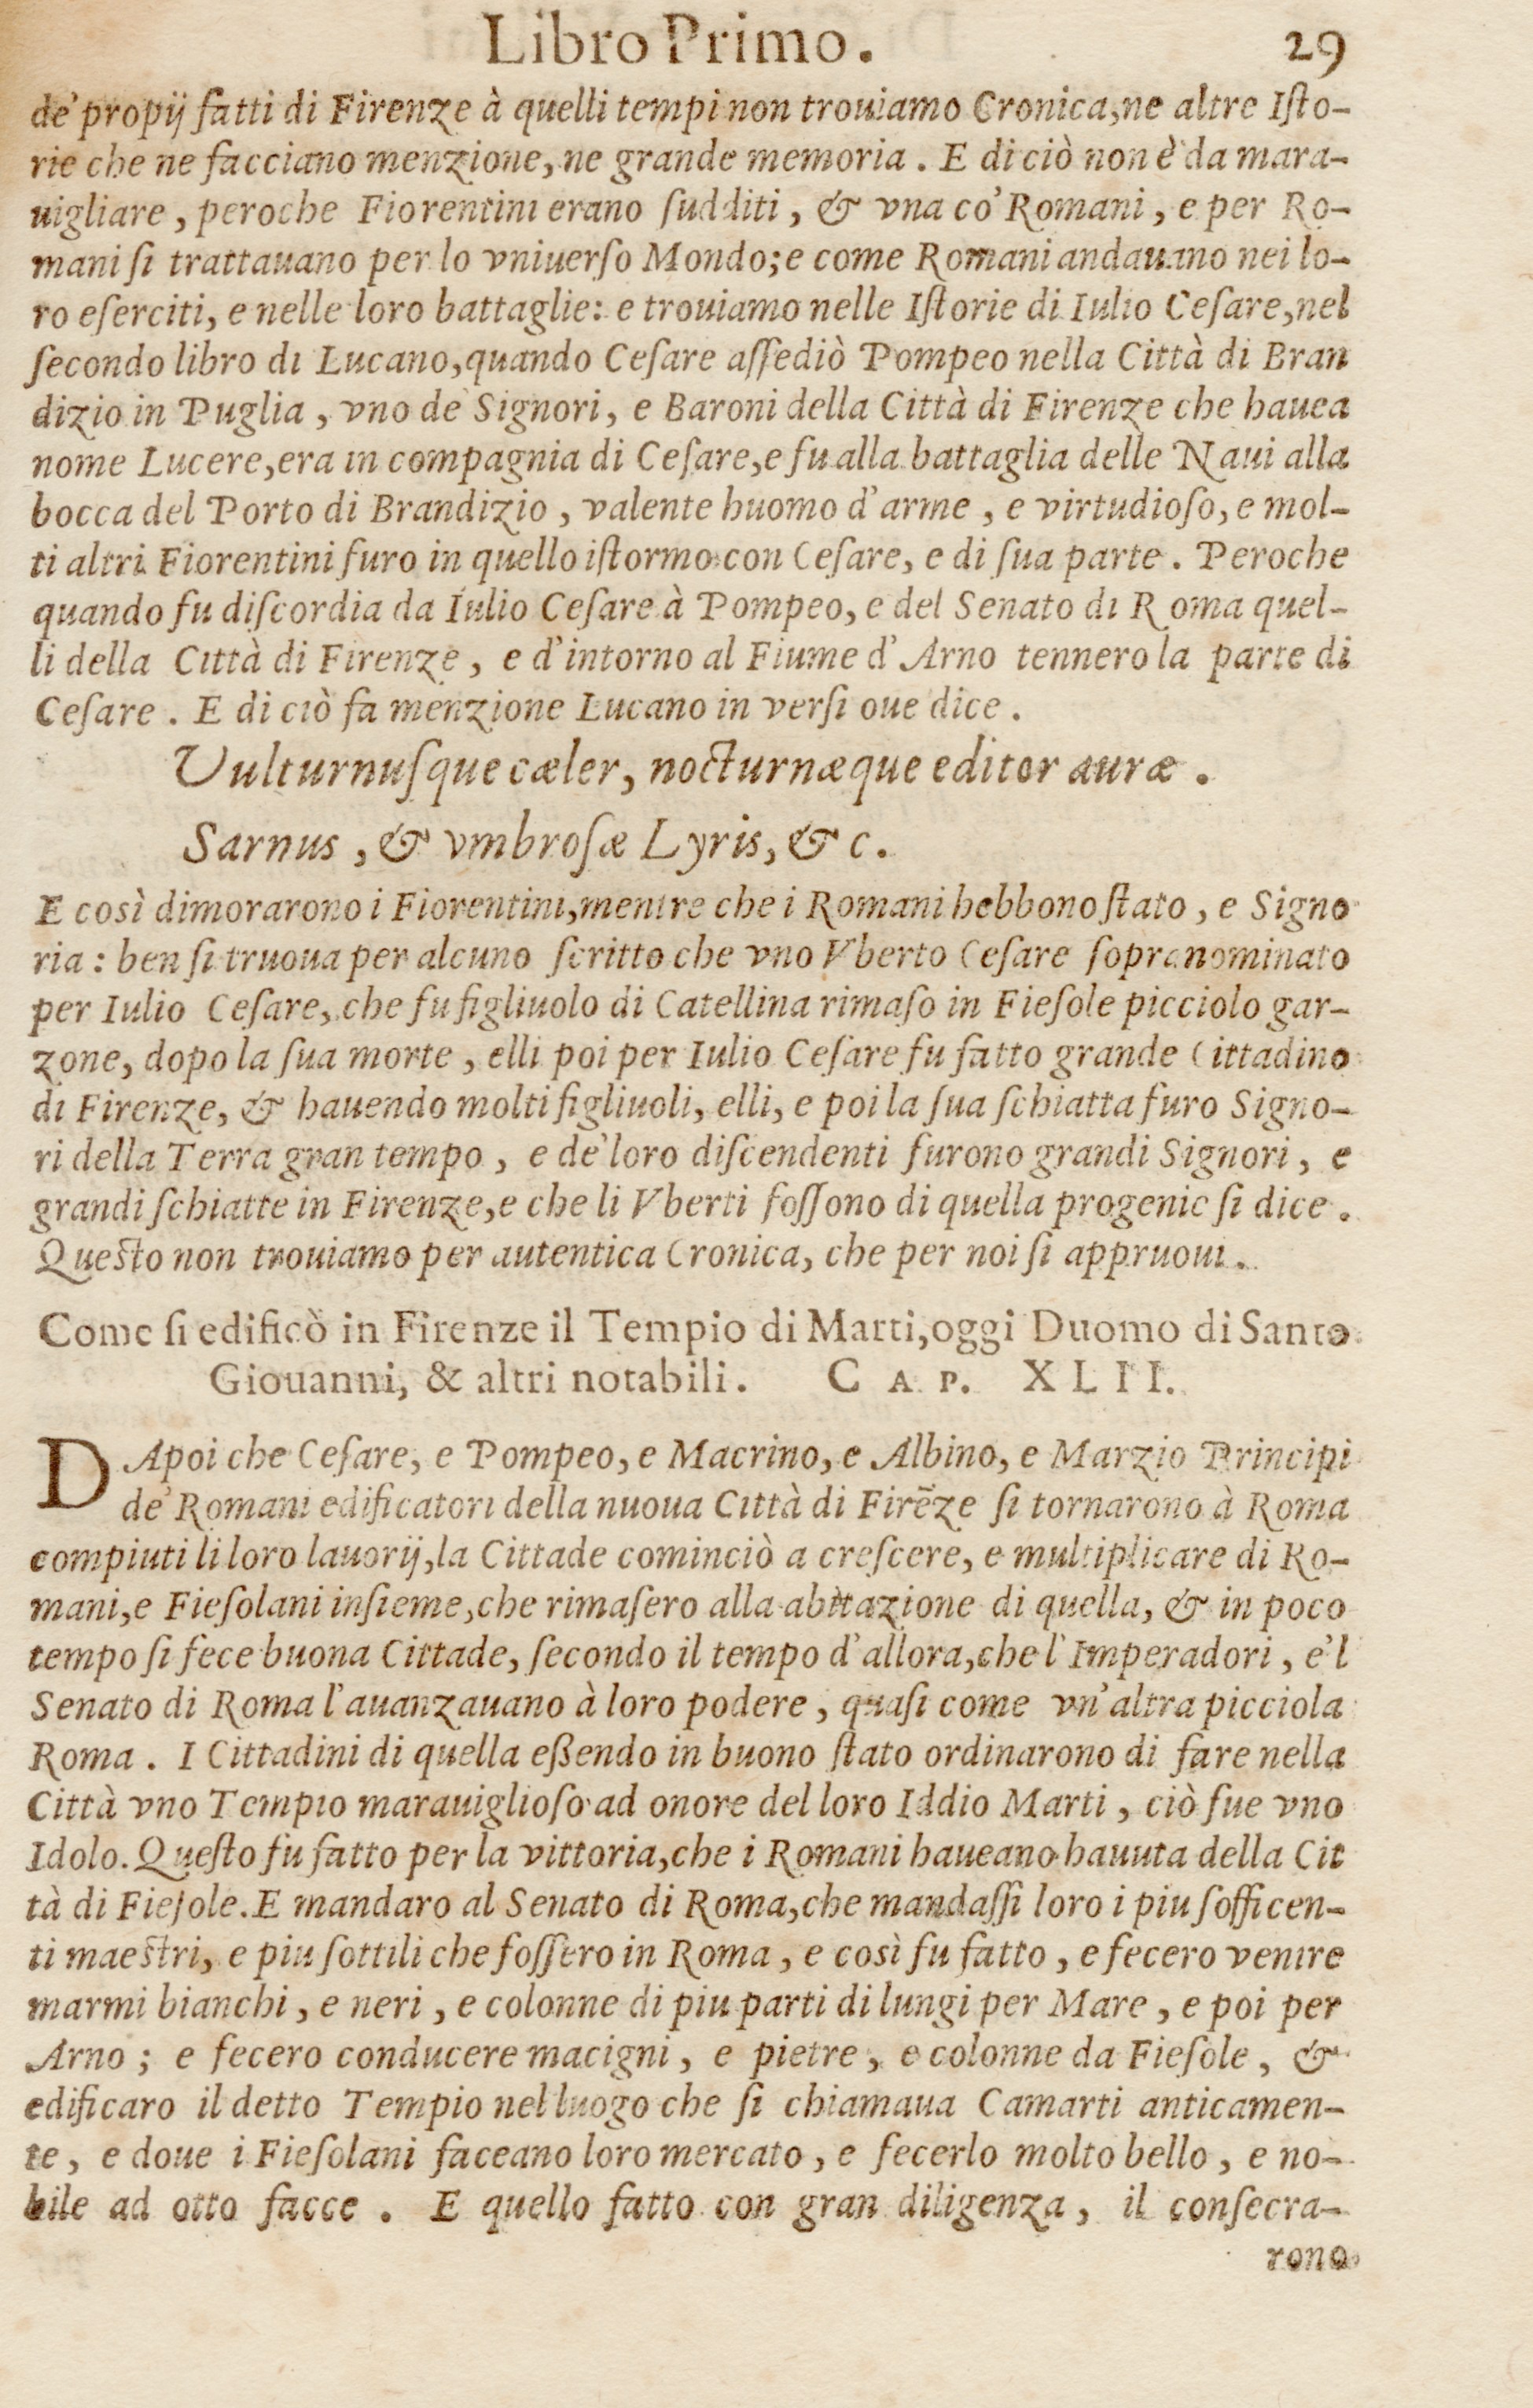 Libro Primo. 29
de' propij fatti di Firenze à quelli tempi non trouiamo Cronica, ne altre Iſto-
rie che ne facciano menzione, ne grande memoria. E di ciò non è da mara-
uigliare, peroche Fiorentini erano ſudditi, & vna co' Romani, e per Ro-
mani ſi trattauano per lo vniuerſo Mondo; e come Romani andauano nei lo-
ro eſerciti, e nelle loro battaglie: e trouiamo nelle Iſtorie di Iulio Ceſare, nel
ſecondo libro di Lucano, quando Ceſare aſſediò Pompeo nella Città di Bran
dizio in Puglia, vno de Signori, e Baroni della Città di Firenze che hauea
nome Lucere, era in compagnia di Ceſare, e fu alla battaglia delle Naui alla
bocca del Porto di Brandizio, valente huomo d'arme, e virtudioſo, e mol-
ti altri Fiorentini furo in quello iſtormo con Ceſare, e di ſua parte. Peroche
quando fu diſcordia da Iulio Ceſare à Pompeo, e del Senato di Roma quel-
li della Città di Firenze, e d'intorno al Fiume d'Arno tennero la parte di
Ceſare. E di ciò fa menzione Lucano in verſi oue dice.
Uulturnuſque cæler, nocturnæque editor auræ.
Sarnus, & vmbroſæ Lyris, & c.
E così dimorarono i Fiorentini, mentre che i Romani hebbono ſtato, e Signo
ria: ben ſi truoua per alcuno ſcritto che vno Vberto Ceſare ſopranominato
per Iulio Ceſare, che fu figliuolo di Catellina rimaſo in Fieſole picciolo gar-
zone, dopo la ſua morte, elli poi per Iulio Ceſare fu fatto grande Cittadino
di Firenze, & hauendo molti figliuoli, elli, e poi la ſua ſchiatta furo Signo-
ri della Terra gran tempo, e de' loro diſcendenti furono grandi Signori, e
grandi ſchiatte in Firenze, e che li Vberti foſſono di quella progenie ſi dice.
Queſto non trouiamo per autentica Cronica, che per noi ſi appruoui.
Come ſi edificò in Firenze il Tempio di Marti, oggi Duomo di Santo
Giouanni, & altri notabili. CAP. XLII.
DApoi che Ceſare, e Pompeo, e Macrino, e Albino, e Marzio Principi
de' Romani edificatori della nuoua Città di Firẽze ſi tornarono à Roma
compiuti li loro lauorij, la Cittade cominciò a creſcere, e multiplicare di Ro-
mani, e Fieſolani inſieme, che rimaſero alla abitazione di quella, & in poco
tempo ſi fece buona Cittade, ſecondo il tempo d'allora, che l'Imperadori, e'l
Senato di Roma l'auanzauano à loro podere, quaſi come vn'altra picciola
Roma. I Cittadini di quella eßendo in buono ſtato ordinarono di fare nella
Città vno Tempio marauiglioſo ad onore del loro Iddio Marti, ciò fue vno
Idolo. Queſto fu fatto per la vittoria, che i Romani haueano hauuta della Cit
tà di Fieſole. E mandaro al Senato di Roma, che mandaſſi loro i piu ſofficen-
ti maeſtri, e piu ſottili che foſſero in Roma, e così fu fatto, e fecero venire
marmi bianchi, e neri, e colonne di piu parti di lungi per Mare, e poi per
Arno; e fecero conducere macigni, e pietre, e colonne da Fieſole, &
edificaro il detto Tempio nel luogo che ſi chiamaua Camarti anticamen-
te, e doue i Fieſolani faceano loro mercato, e fecerlo molto bello, e no-
bile ad otto facce. E quello fatto con gran diligenza, il conſecra-
rono